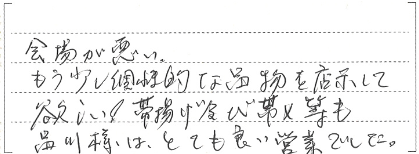 会場が悪い.
もう少し個性的な品物を店示して
欲しい! 帯揚げ及び帯〆等も
品川様は、とても良い営業でした。